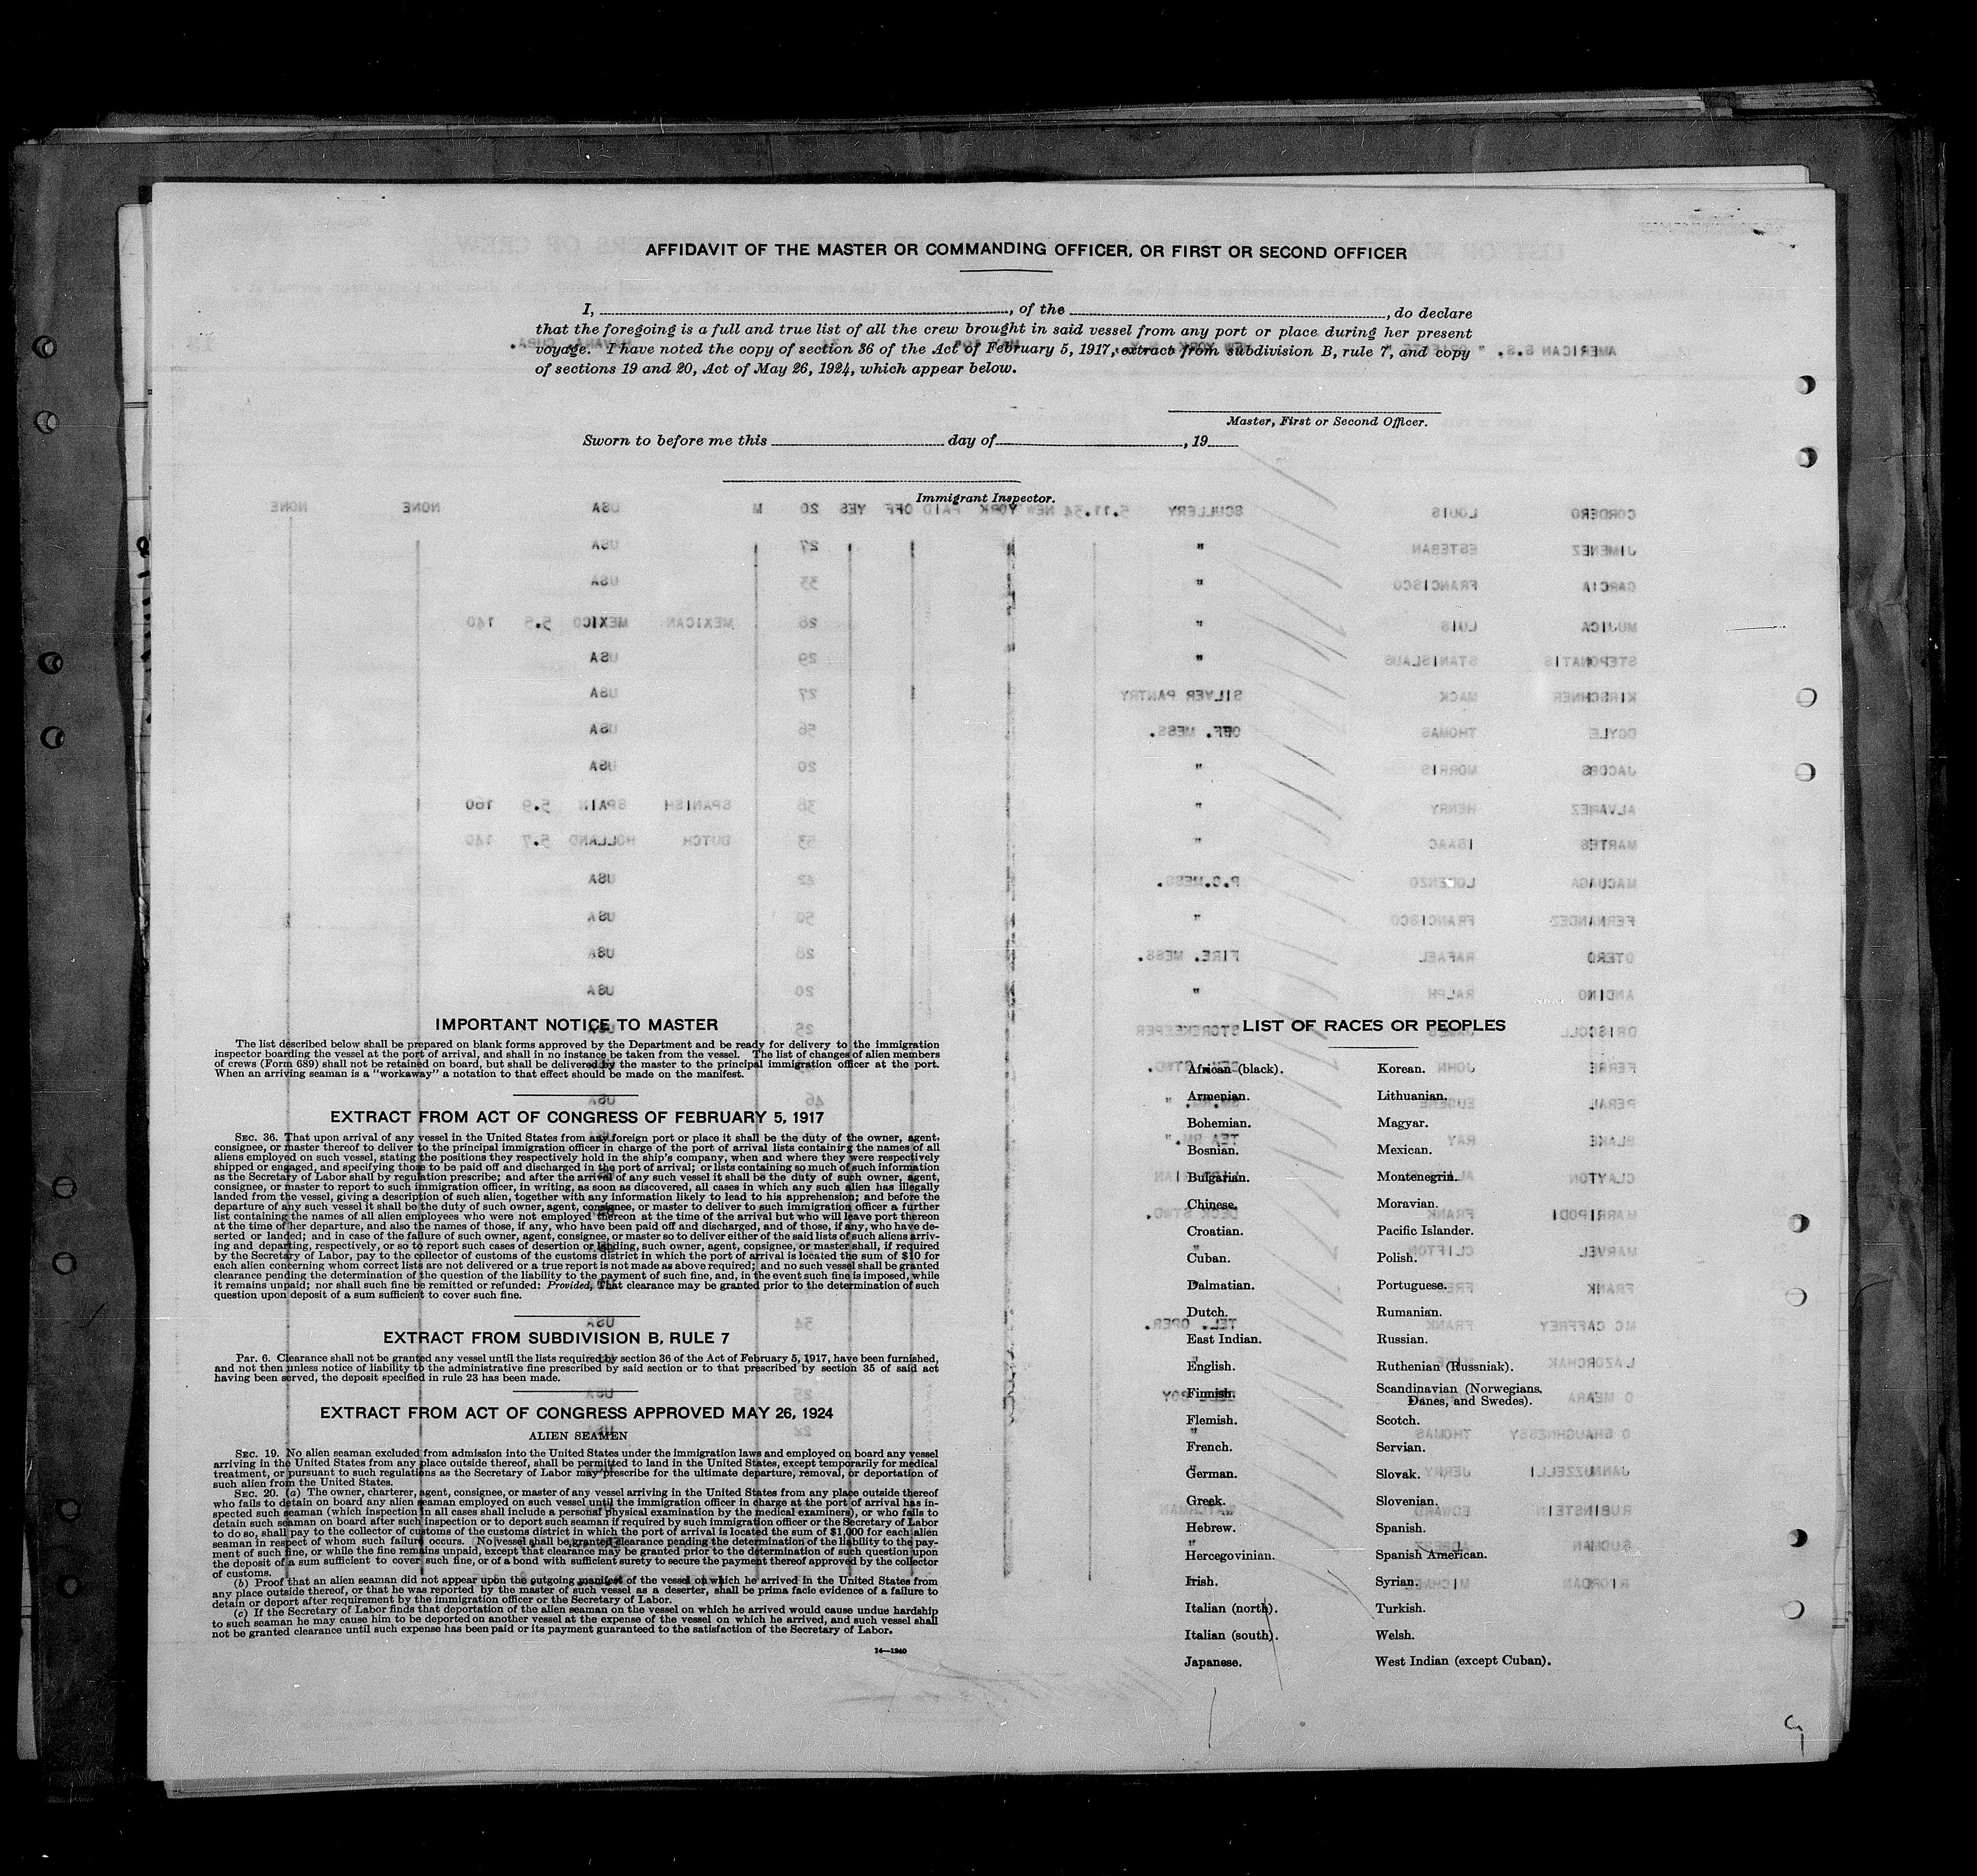 AFFIDAVIT OF THE MASTER OR COMMANDING OFFICER, OR FIRST OR SECOND OFFICER
I, , of the , do declare
that the foregoing is a full and true list of all the crew brought in said vessel from any port or place during her present
voyage. I have noted the copy of section 36 of the Act of February 5, 1917, extract from subdivision B, rule 7, and copy
of sections 19 and 20, Act of May 26, 1924, which appear below.
Master, First or Second Officer.
Sworn to before me this day of , 19
Immigrant Inspector.
IMPORTANT NOTICE TO MASTER
The list described below shall be prepared on blank forms approved by the Department and be ready for delivery to the immigration
inspector boarding the vessel at the port of arrival, and shall in no instance be taken from the vessel. The list of changes of alien members
of crews (Form 689) shall not be retained on board, but shall be delivered by the master to the principal immigration officer at the port.
When an arriving seaman is a "workaway" a notation to that effect should be made on the manifest.
EXTRACT FROM ACT OF CONGRESS OF FEBRUARY 5, 1917
SEC. 36. That upon arrival of any vessel in the United States from any foreign port or place it shall be the duty of the owner, agent,
consignee, or master thereof to deliver to the principal immigration officer in charge of the port of arrival lists containing the names of all
aliens employed on such vessel, stating the positions they respectively hold in the ship's company, when and where they were respectively
shipped or engaged, and specifying those to be paid off and discharged in the port of arrival; or lists containing so much of such information
as the Secretary of Labor shall by regulation prescribe; and after the arrival of any such vessel it shall be the duty of such owner, agent,
consignee, or master to report to such immigration officer, in writing, as soon as discovered, all cases in which any such alien has illegally
landed from the vessel, giving a description of such alien, together with any information likely to lead to his apprehension; and before the
departure of any such vessel it shall be the duty of such owner, agent, consignee, or master to deliver to such immigration officer a further
list containing the names of all alien employees who were not employed thereon at the time of the arrival but who will leave port thereon
at the time of her departure, and also the names of those, if any, who have been paid off and discharged, and of those, if any, who have de-
serted or landed; and in case of the failure of such owner, agent, consignee, or master so to deliver either of the said lists of such aliens arriv-
ing and departing, respectively, or so to report such cases of desertion or landing, such owner, agent, consignee, or master shall, if required
by the Secretary of Labor, pay to the collector of customs of the customs district in which the port of arrival is located the sum of $10 for
each alien concerning whom correct lists are not delivered or a true report is not made as above required; and no such vessel shall be granted
clearance pending the determination of the question of the liability to the payment of such fine, and, in the event such fine is imposed, while
it remains unpaid; nor shall such fine be remitted or refunded: Provided, That clearance may be granted prior to the determination of such
question upon deposit of a sum sufficient to cover such fine.
EXTRACT FROM SUBDIVISION B, RULE 7
PAR. 6. Clearance shall not be granted any vessel until the lists required by section 36 of the Act of February 5, 1917, have been furnished,
and not then unless notice of liability to the administrative fine prescribed by said section or to that prescribed by section 35 of said act
having been served, the deposit specified in rule 23 has been made.
EXTRACT FROM ACT OF CONGRESS APPROVED MAY 26, 1924
ALIEN SEAMEN
SEC. 19. No alien seaman excluded from admission into the United States under the immigration laws and employed on board any vessel
arriving in the United States from any place outside thereof, shall be permitted to land in the United States, except temporarily for medical
treatment, or pursuant to such regulations as the Secretary of Labor may prescribe for the ultimate departure, removal, or deportation of
such alien from the United States.
SEC. 20. (a) The owner, charterer, agent, consignee, or master of any vessel arriving in the United States from any place outside thereof
who fails to detain on board any alien seaman employed on such vessel until the immigration officer in charge at the port of arrival has in-
spected such seaman (which inspection in all cases shall include a personal physical examination by the medical examiners), or who fails to
detain such seaman on board after such inspection or to deport such seaman if required by such immigration officer or the Secretary of Labor
to do so, shall pay to the collector of customs of the customs district in which the port of arrival is located the sum of $1,000 for each alien
seaman in respect of whom such failure occurs. No vessel shall be granted clearance pending the determination of the liability to the pay-
ment of such fine, or while the fine remains unpaid, except that clearance may be granted prior to the determination of such question upon
the deposit of a sum sufficient to cover such fine, or of a bond with sufficient surety to secure the payment thereof approved by the collector
of customs.
(b) Proof that an alien seaman did not appear upon the outgoing manifest of the vessel on which he arrived in the United States from
any place outside thereof, or that he was reported by the master of such vessel as a deserter, shall be prima facie evidence of a failure to
detain or deport after requirement by the immigration officer or the Secretary of Labor.
(c) If the Secretary of Labor finds that deportation of the alien seaman on the vessel on which he arrived would cause undue hardship
to such seaman he may cause him to be deported on another vessel at the expense of the vessel on which he arrived, and such vessel shall
not be granted clearance until such expense has been paid or its payment guaranteed to the satisfaction of the Secretary of Labor.
14—1240
LIST OF RACES OR PEOPLES
African (black).
Armenian.
Bohemian.
Bosnian.
Bulgarian.
Chinese.
Croatian.
Cuban.
Dalmatian.
Dutch.
East Indian.
English.
Finnish.
Flemish.
French.
German.
Greek.
Hebrew.
Hercegovinian.
Irish.
Italian (north).
Italian (south).
Japanese.
Korean.
Lithuanian.
Magyar.
Mexican.
Montenegrin.
Moravian.
Pacific Islander.
Polish.
Portuguese.
Rumanian.
Russian.
Ruthenian (Russniak).
Scandinavian (Norwegians,
Danes, and Swedes).
Scotch.
Servian.
Slovak.
Slovenian.
Spanish.
Spanish American.
Syrian.
Turkish.
Welsh.
West Indian (except Cuban).